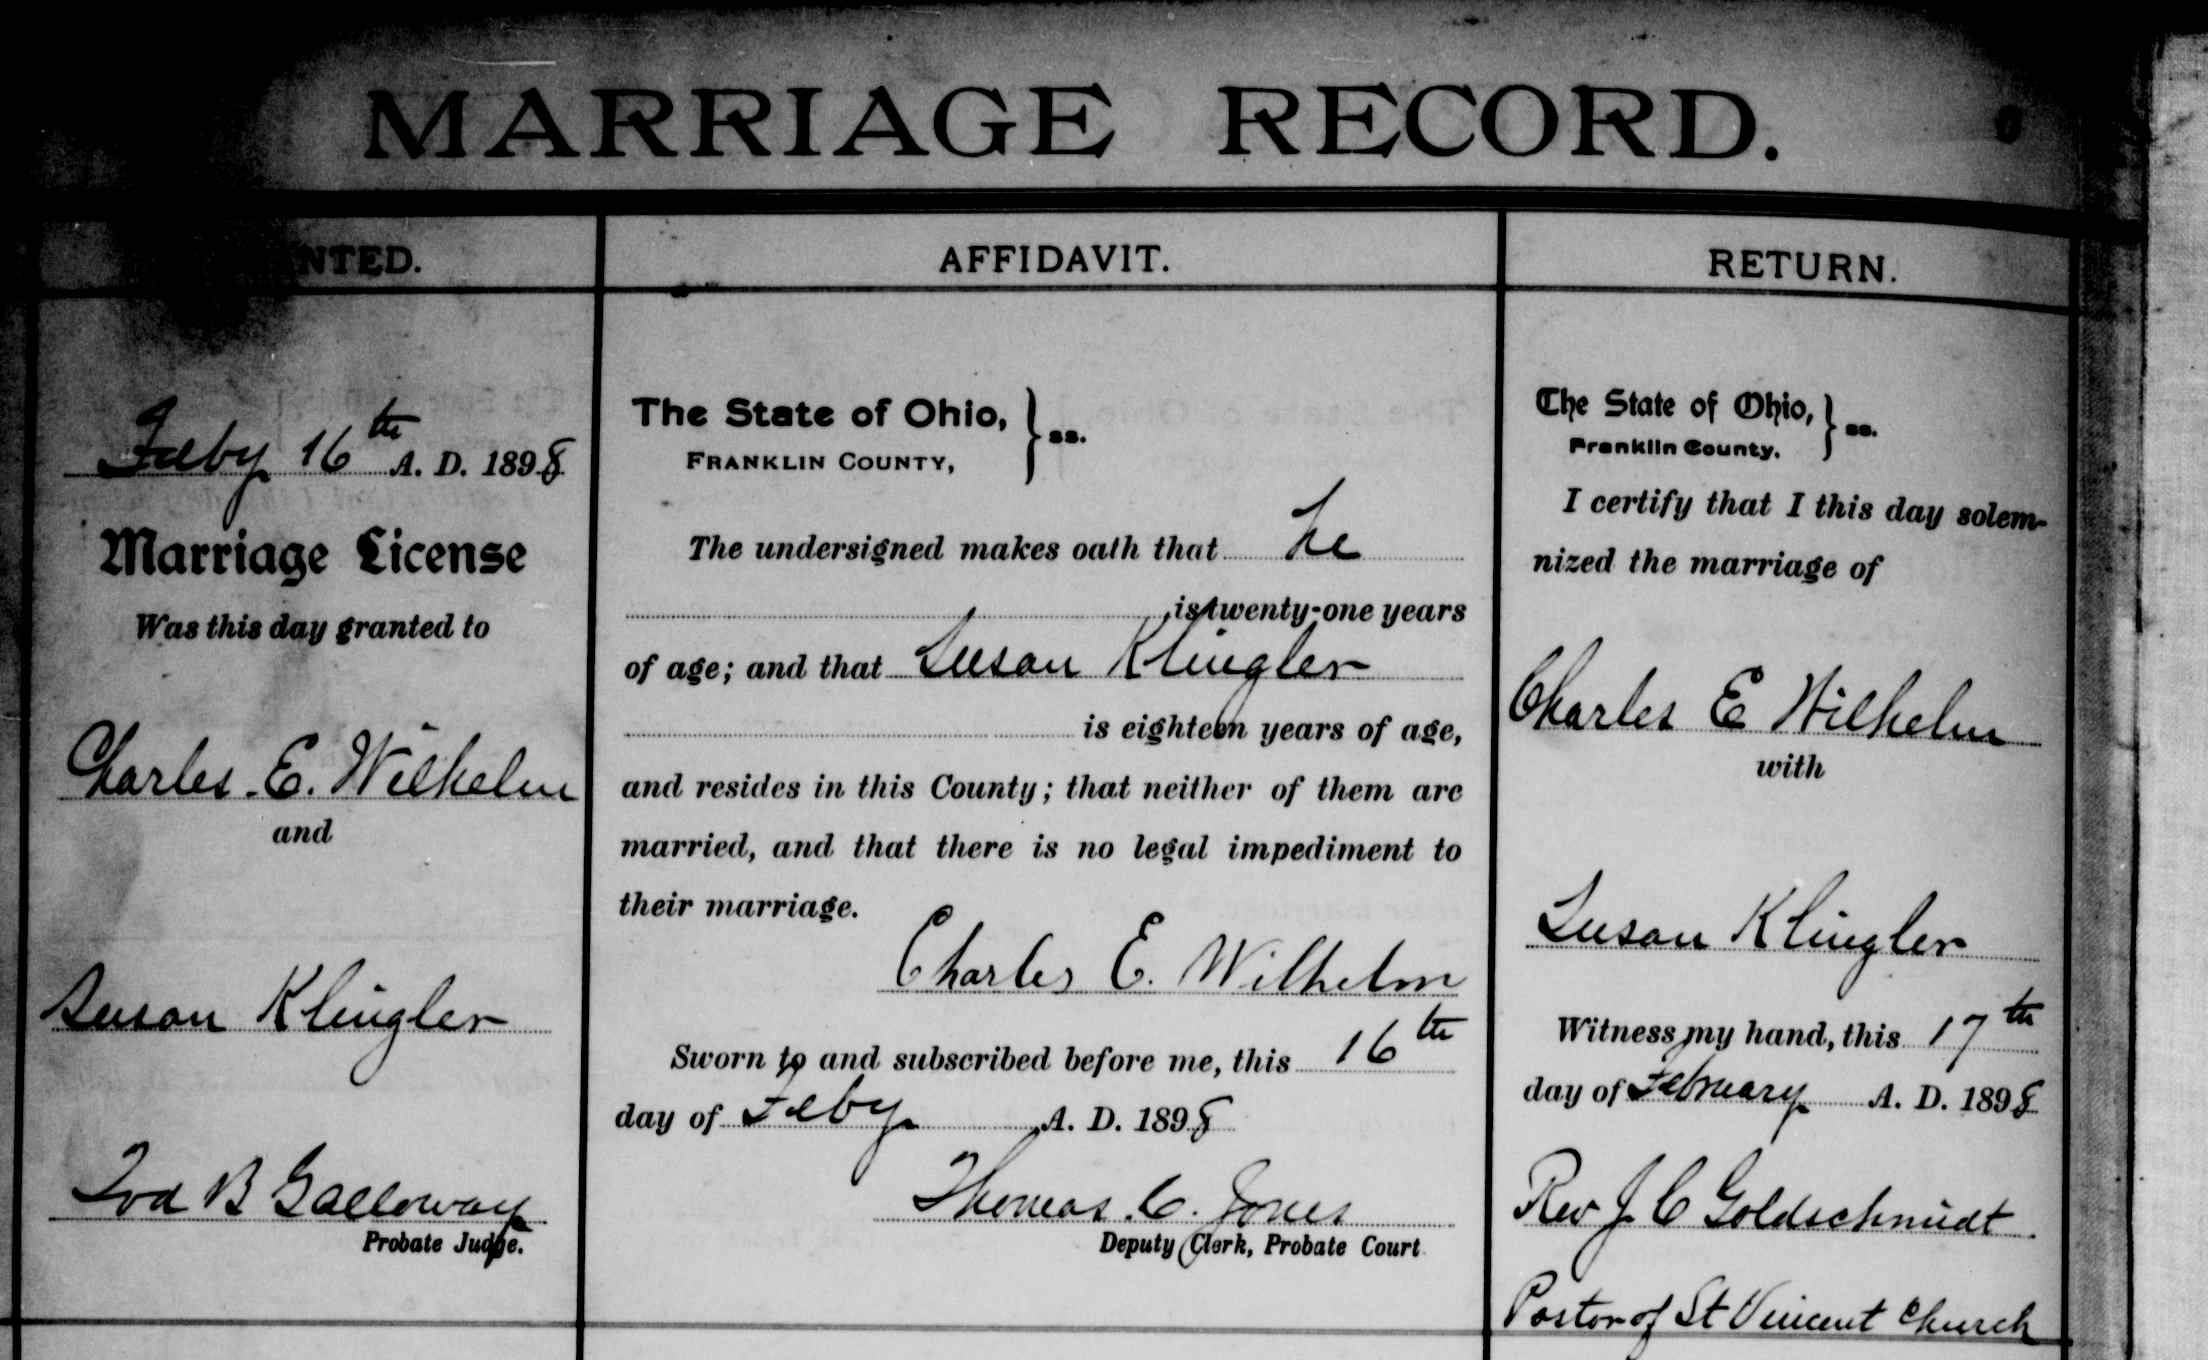 MARRIAGE RECORD.
NTED.
Feby 16th A. D. 1898
Marriage License
Was this day granted to
Charles E. Wilhelm
and
Susan Klingler
Tod B Galloway
Probate Judge.
AFFIDAVIT.
The State of Ohio, } ss.
FRANKLIN COUNTY,
The undersigned makes oath that he
is twenty-one years
of age; and that Susan Klingler
is eighteen years of age,
and resides in this County; that neither of them are
married, and that there is no legal impediment to
their marriage.
Charles E. Wilhelm
Sworn to and subscribed before me, this 16th
day of Feby A. D. 1898
Thomas C. Jones
Deputy Clerk, Probate Court
RETURN.
The State of Ohio, } ss.
Franklin County.
I certify that I this day solem-
nized the marriage of
Charles E Wilhelm
with
Susan Klingler
Witness my hand, this 17th
day of February A. D. 1898
Rev J. C Goldschmidt
Pastor of St Vincent Church